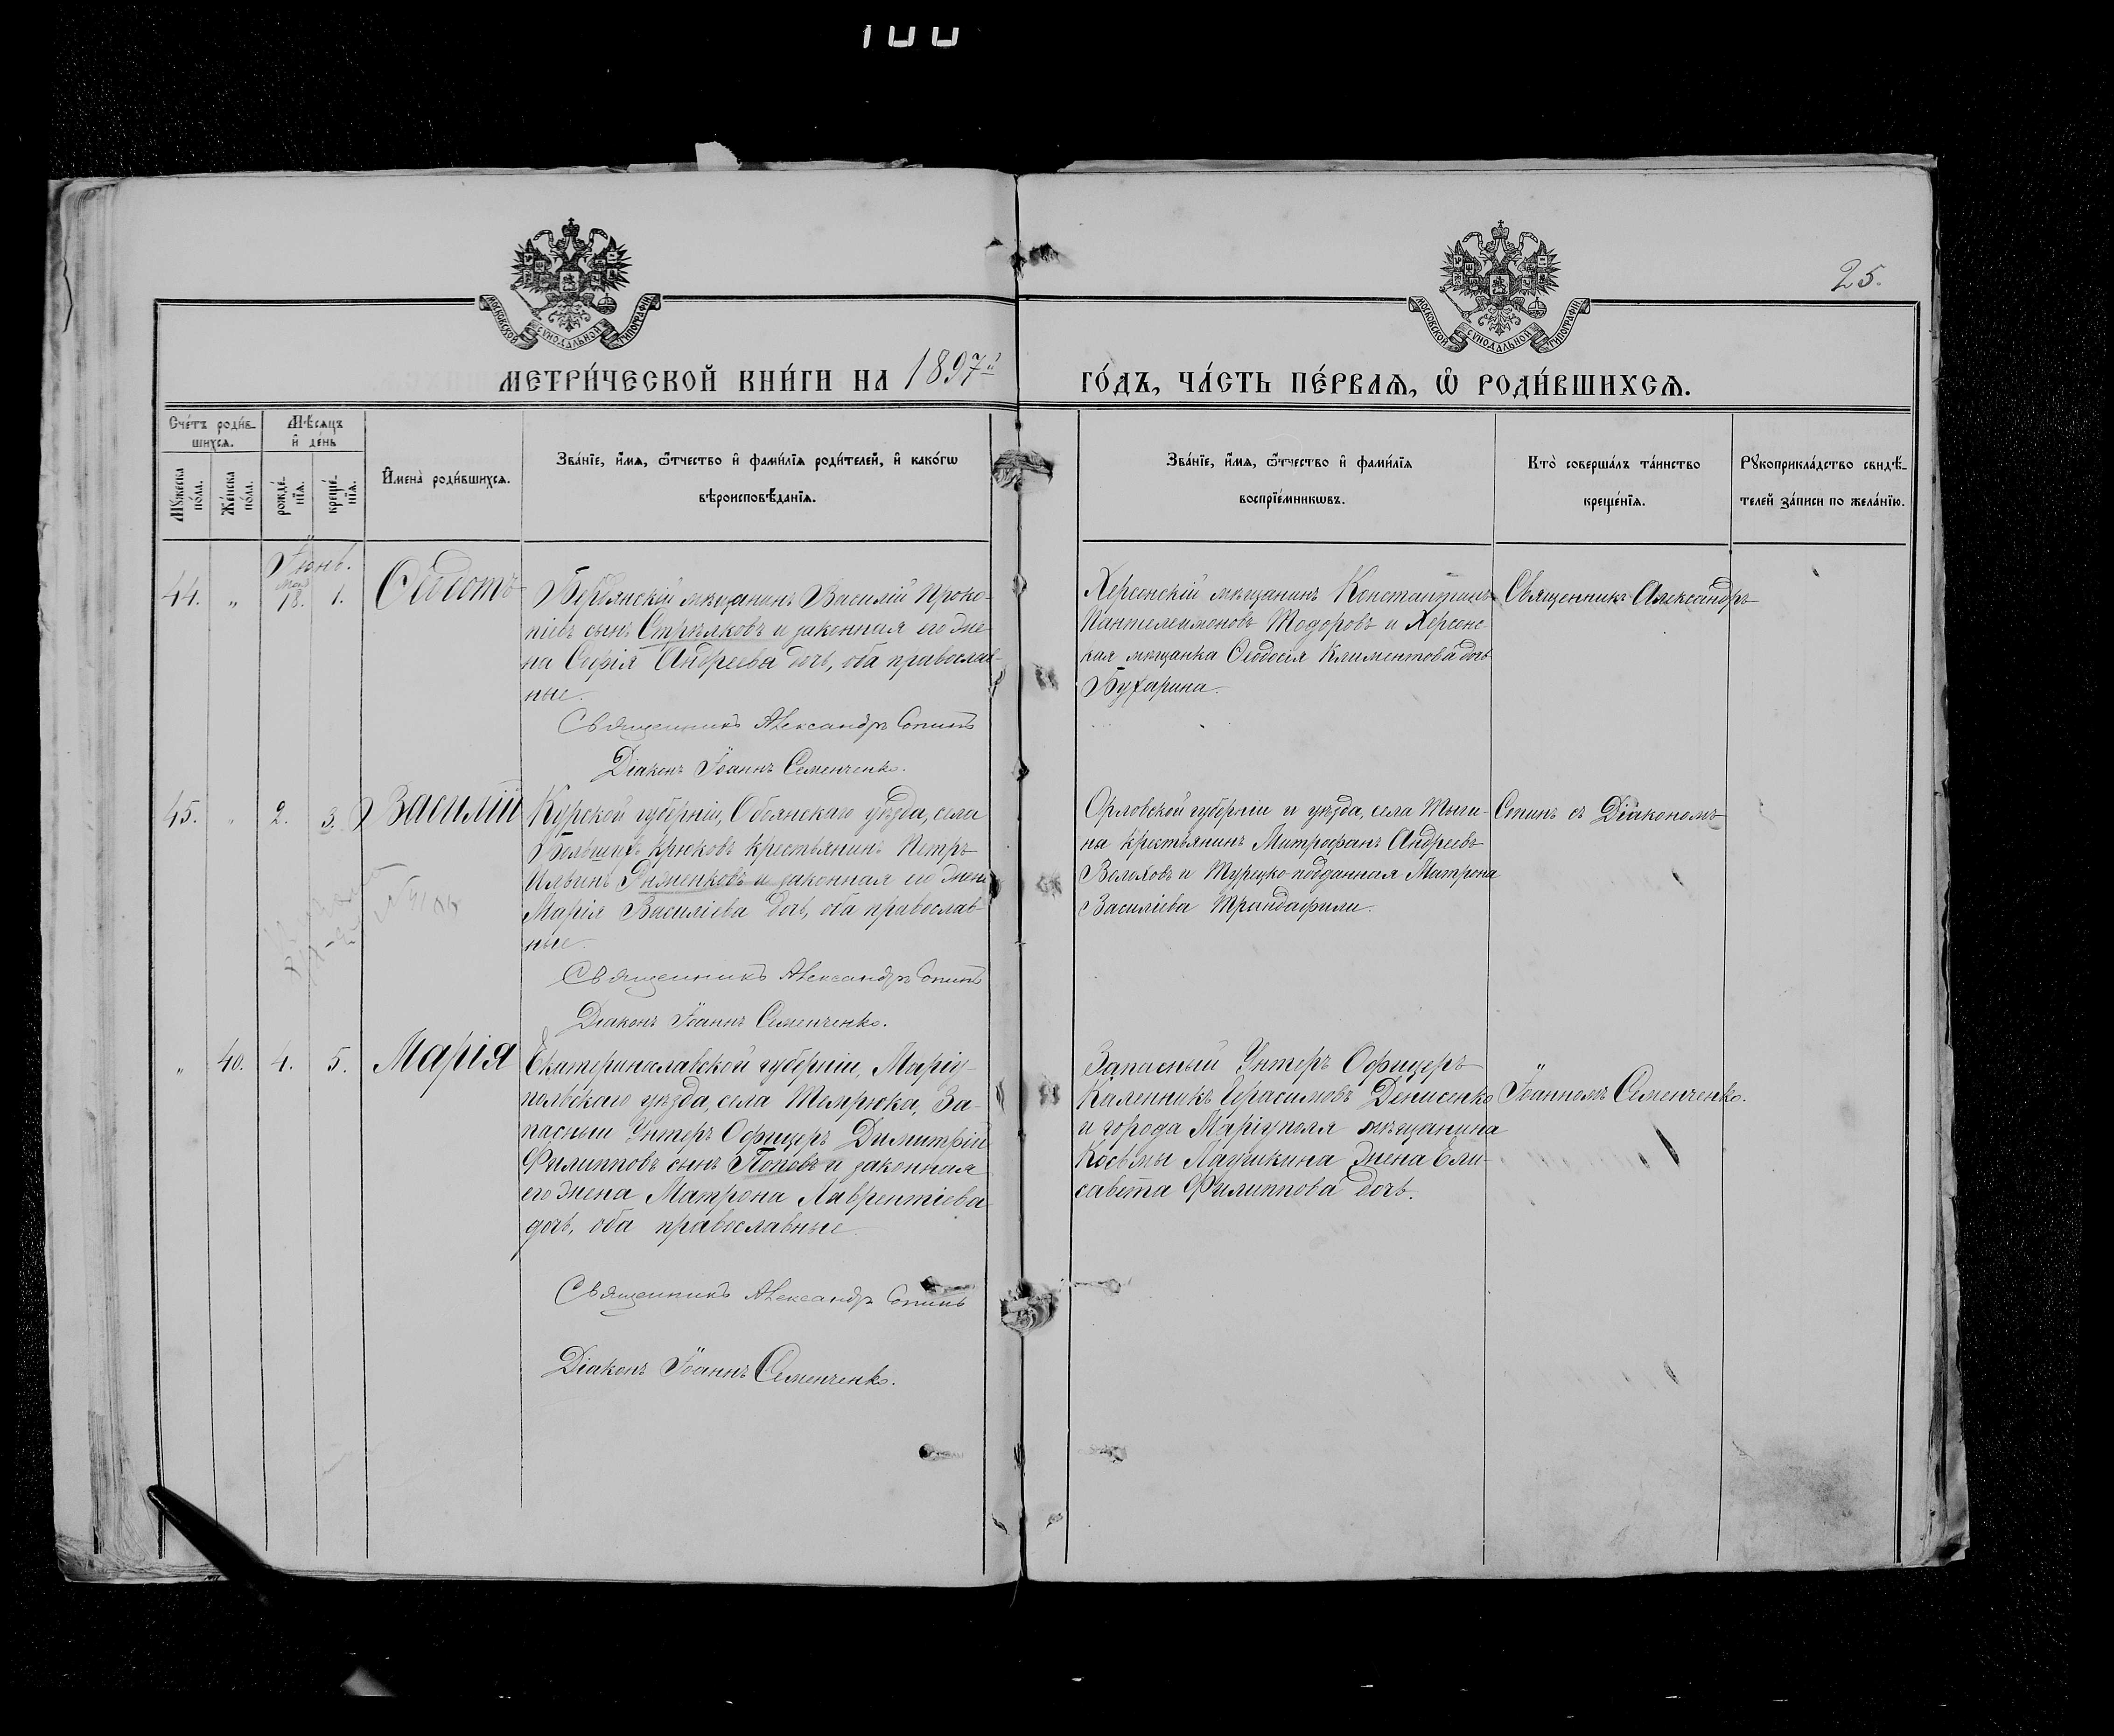 100
25.
МОСКОВСКОЙ СѴНОДАЛЬНОЙ ТИПОГРАФІИ
МОСКОВСКОЙ СѴНОДАЛЬНОЙ ТИПОГРАФІИ
МЕТРИ́ЧЕСКОЙ КНИ́ГИ НА 1897й ГО́ДЪ, ЧА́СТЬ ПЕ́РВАѦ, Ѡ РОДИ́ВШИХСѦ.
Сче́тъ роди́в-
шихсѧ.
Мѣ́сѧцъ
и҆ де́нь
Мꙋ́жеска
по́ла.
Же́нска
по́ла.
рожде́-
нїѧ.
креще́-
нїѧ.
И҆мена̀ роди́вшихсѧ.
Зва́нїе, и҆́мѧ, ѻ҆́тчество и҆ фами́лїѧ роди́телей, и҆ како́гѡ
вѣроисповѣ́данїѧ.
Зва́нїе, и҆́мѧ, ѻ҆́тчество и҆ фами́лїѧ
воспрїе́мникѡвъ.
Кто̀ соверша́лъ та́инство
креще́нїѧ.
Рꙋкоприкла́дство свидѣ́-
телей за́писи по жела́нїю.
Іюнь.
44. „ Мая 18. 1. Ѳеодотъ
Бердянскій мѣщанинъ Василій Проко-
піевъ сынъ Стрѣлковъ и законная его же-
на Софія Андреева дочь, оба православ-
ные.
Священникъ Александръ Сопинъ
Діаконъ Іоаннъ Семенченко.
Херсонскій мѣщанинъ Константинъ
Пантелеимоновъ Тодоровъ и Херсонс-
кая мѣщанка Ѳеодосія Климентова дочь
Бухарина.
Священникъ Александръ
45. „ 2. 3. Василій
Курской губерніи, Обоянскаго уѣзда, села
Крюковъ крестьянинъ Петръ
Ильинъ и законная его жена
Марія Василіева дочь, оба православ-
ные.
Священникъ Александръ Сопинъ
Діаконъ Іоаннъ Семенченко.
Орловской губерніи и уѣзда, села
на крестьянинъ Митрофанъ Андреевъ
Волоховъ и Турецко-подданная Матрона
Василіева Трандафили.
Сопинъ съ Діакономъ
„ 40. 4. 5. Марія
Екатеринославской губерніи, Маріу-
польскаго уѣзда, села Темрюка, За-
пасный Унтеръ Офицеръ Димитрій
Филипповъ сынъ Поповъ и законная
его жена Матрона Лаврентіева
дочь, оба православные.
Священникъ Александръ Сопинъ
Діаконъ Іоаннъ Семенченко.
Запасный Унтеръ Офицеръ
Каленникъ Герасимовъ Денисенко
и города Маріуполя мѣщанина
Косьмы жена Ели-
савета Филиппова дочь.
Іоанномъ Семенченко.